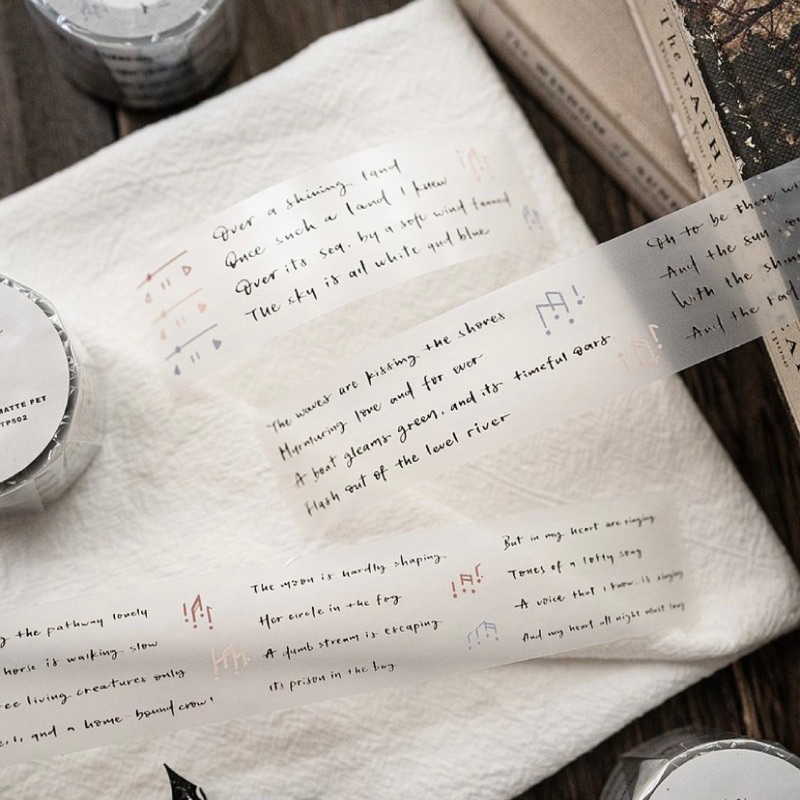 The PATH
Discovering Your Life
THE WISDOM of
Over a shining land
Once such a land I knew
Over its sea, by a soft wind fanned
The sky is all white and blue
Oh to be there
And the sun
With the
And the
The waves are kissing the shores
Murmuring love and for ever
A boat gleams green, and its timeful oars
Flash out of the level river
MATTE PET
TP502
the pathway lonely
horse is walking slow
living creatures only
and a home-bound crow!
The moon is hardly shaping
Her circle in the fog
A dumb stream is escaping
Its prison in the bog
But in my heart are ringing
Tones of a lofty song
A voice that I know, is singing
And my heart all night must long